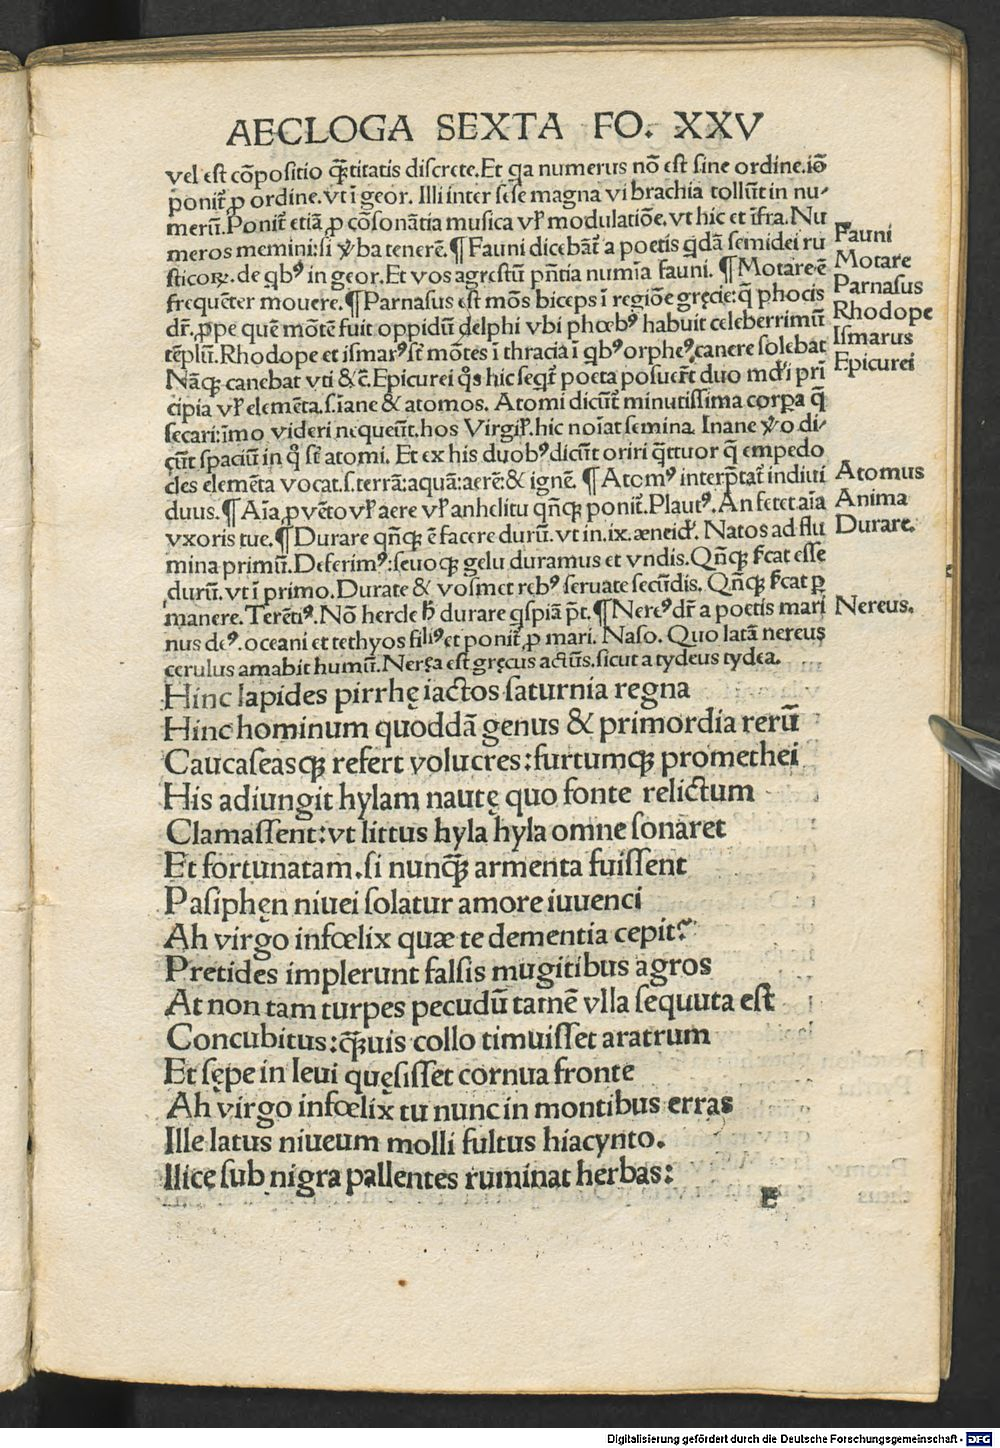 AECLOGA SEXTA FO. XXV
vel est cõpositio q̃titatis discrete. Et qa numerus nõ est sine ordine. iõ
ponit᷑ ꝓ ordine. vt ĩ geor. Illi inter sese magna vi brachia tollũt in nu-
merũ. Ponit᷑ etiã ꝓ cõsonãtia musica vl̕ modulatiõe. vt hic et ĩfra. Nu
meros memini: si ṽba tenerẽ. ¶ Fauni dicebãt᷑ a poetis qdã semidei ru
sticoꝝ. de qbꝰ in geor. Et vos agrestũ pñtia numĩa fauni. ¶ Motare ẽ
frequẽter mouere. ¶ Parnasus est mõs biceps ĩ regiõe gręcię: q̃ phocis
dr̃. ꝓpe quẽ mõtẽ fuit oppidũ delphi vbi phœbꝰ habuit celeberrimũ
tẽplũ. Rhodope et ismarꝰ sũt mõtes ĩ thracia ĩ qbꝰ orpheꝰ canere solebat
Nãqꝫ canebat vti &c̃. Epicurei q̃s hic seqt᷑ poeta posuerũt duo mũdi prĩ
cipia vl̕ elemẽta. s. ĩane & atomos. Atomi dicũt᷑ minutissima corpa q̃
secari: ĩmo videri nequeũt. hos Virgil̕. hic noĩat semina. Inane ṽo di-
cũt spaciũ in q̊ sũt atomi. Et ex his duobꝰ dicũt oriri q̃ttuor q̃ empedo
cles elemẽta vocat. s. terrã: aquã: aerẽ: & ignẽ. ¶ Atomꝰ interp̃tat᷑ indiui
duus. ¶ Aĩa ꝓ vẽto vl̕ aere vl̕ anhelitu qñqꝫ ponit᷑. Plautꝰ. An fetet aĩa
vxoris tue. ¶ Durare qñqꝫ ẽ facere durũ. vt in. ix. æneid̕. Natos ad flu
mina primũ. Deferimꝰ: seuoqꝫ gelu duramus et vndis. Qñqꝫ s̕cat esse
durũ. vt ĩ primo. Durate & vosmet rebꝰ seruate secũdis. Qñqꝫ s̕cat ꝑ
manere. Terẽtiꝰ. Nõ hercle h̕ durare qspiã pt̃. ¶ Nereꝰ dr̃ a poetis mari
nus deꝰ. oceani et tethyos filiꝰ et ponit᷑ ꝓ mari. Naso. Quo latã nereus
cerulus amabit humũ. Neręa est gręcus actũs. sicut a tydeus tydea.
Hinc lapides pirrhę iactos saturnia regna
Hinc hominum quoddã genus & primordia rerũ
Caucaseasqꝫ refert volucres: furtumqꝫ promethei
His adiungit hylam nautę quo fonte relictum
Clamassent: vt littus hyla hyla omne sonaret
Et fortunatam. si nunq̃ armenta fuissent
Pasiphęn niuei solatur amore iuuenci
Ah virgo infœlix quæ te dementia cepit?
Pretides implerunt falsis mugitibus agros
At non tam turpes pecudũ tamẽ vlla sequuta est
Concubitus: q̃uis collo timuisset aratrum
Et sępe in leui quęsisset cornua fronte
Ah virgo infœlix tu nunc in montibus erras
Ille latus niueum molli fultus hiacynto.
Ilicę sub nigra pallentes ruminat herbas:
E
Fauni
Motare
Parnasus
Rhodope
Ismarus
Epicurei
Atomus
Anima
Durare.
Nereus.
Digitalisierung gefördert durch die Deutsche Forschungsgemeinschaft - DFG